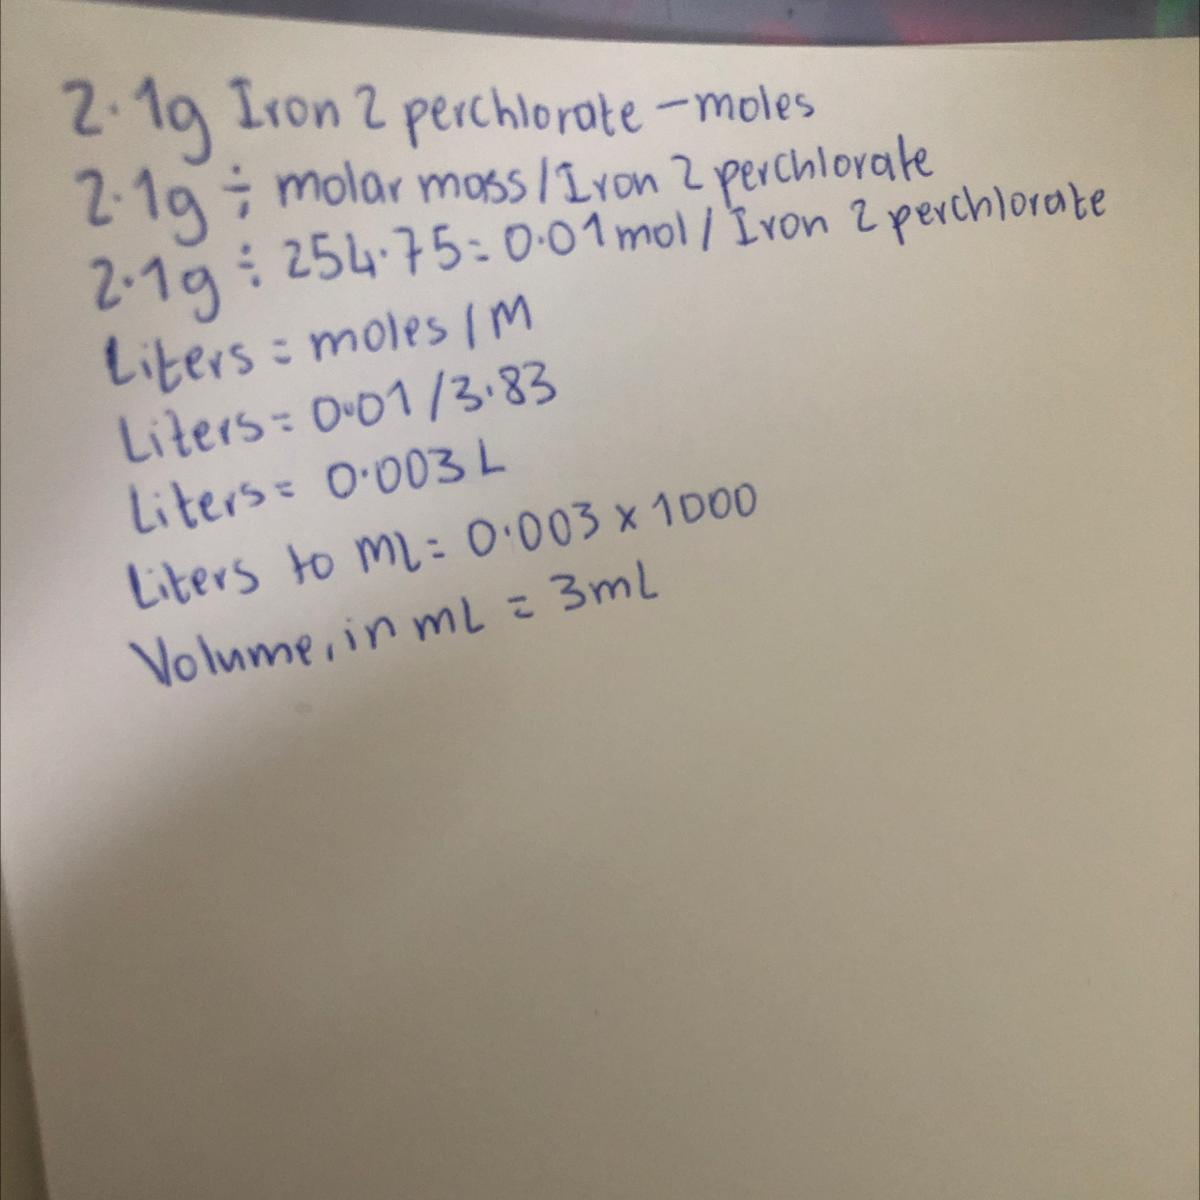 2.1g Iron 2 perchlorate - moles
2.1g ÷ molar mass/Iron 2 perchlorate
2.1g ÷ 254.75 = 0.01 mol/Iron 2 perchlorate
Liters = moles/M
Liters = 0.01/3.83
Liters = 0.003 L
Liters to mL = 0.003 x 1000
Volume, in mL = 3mL